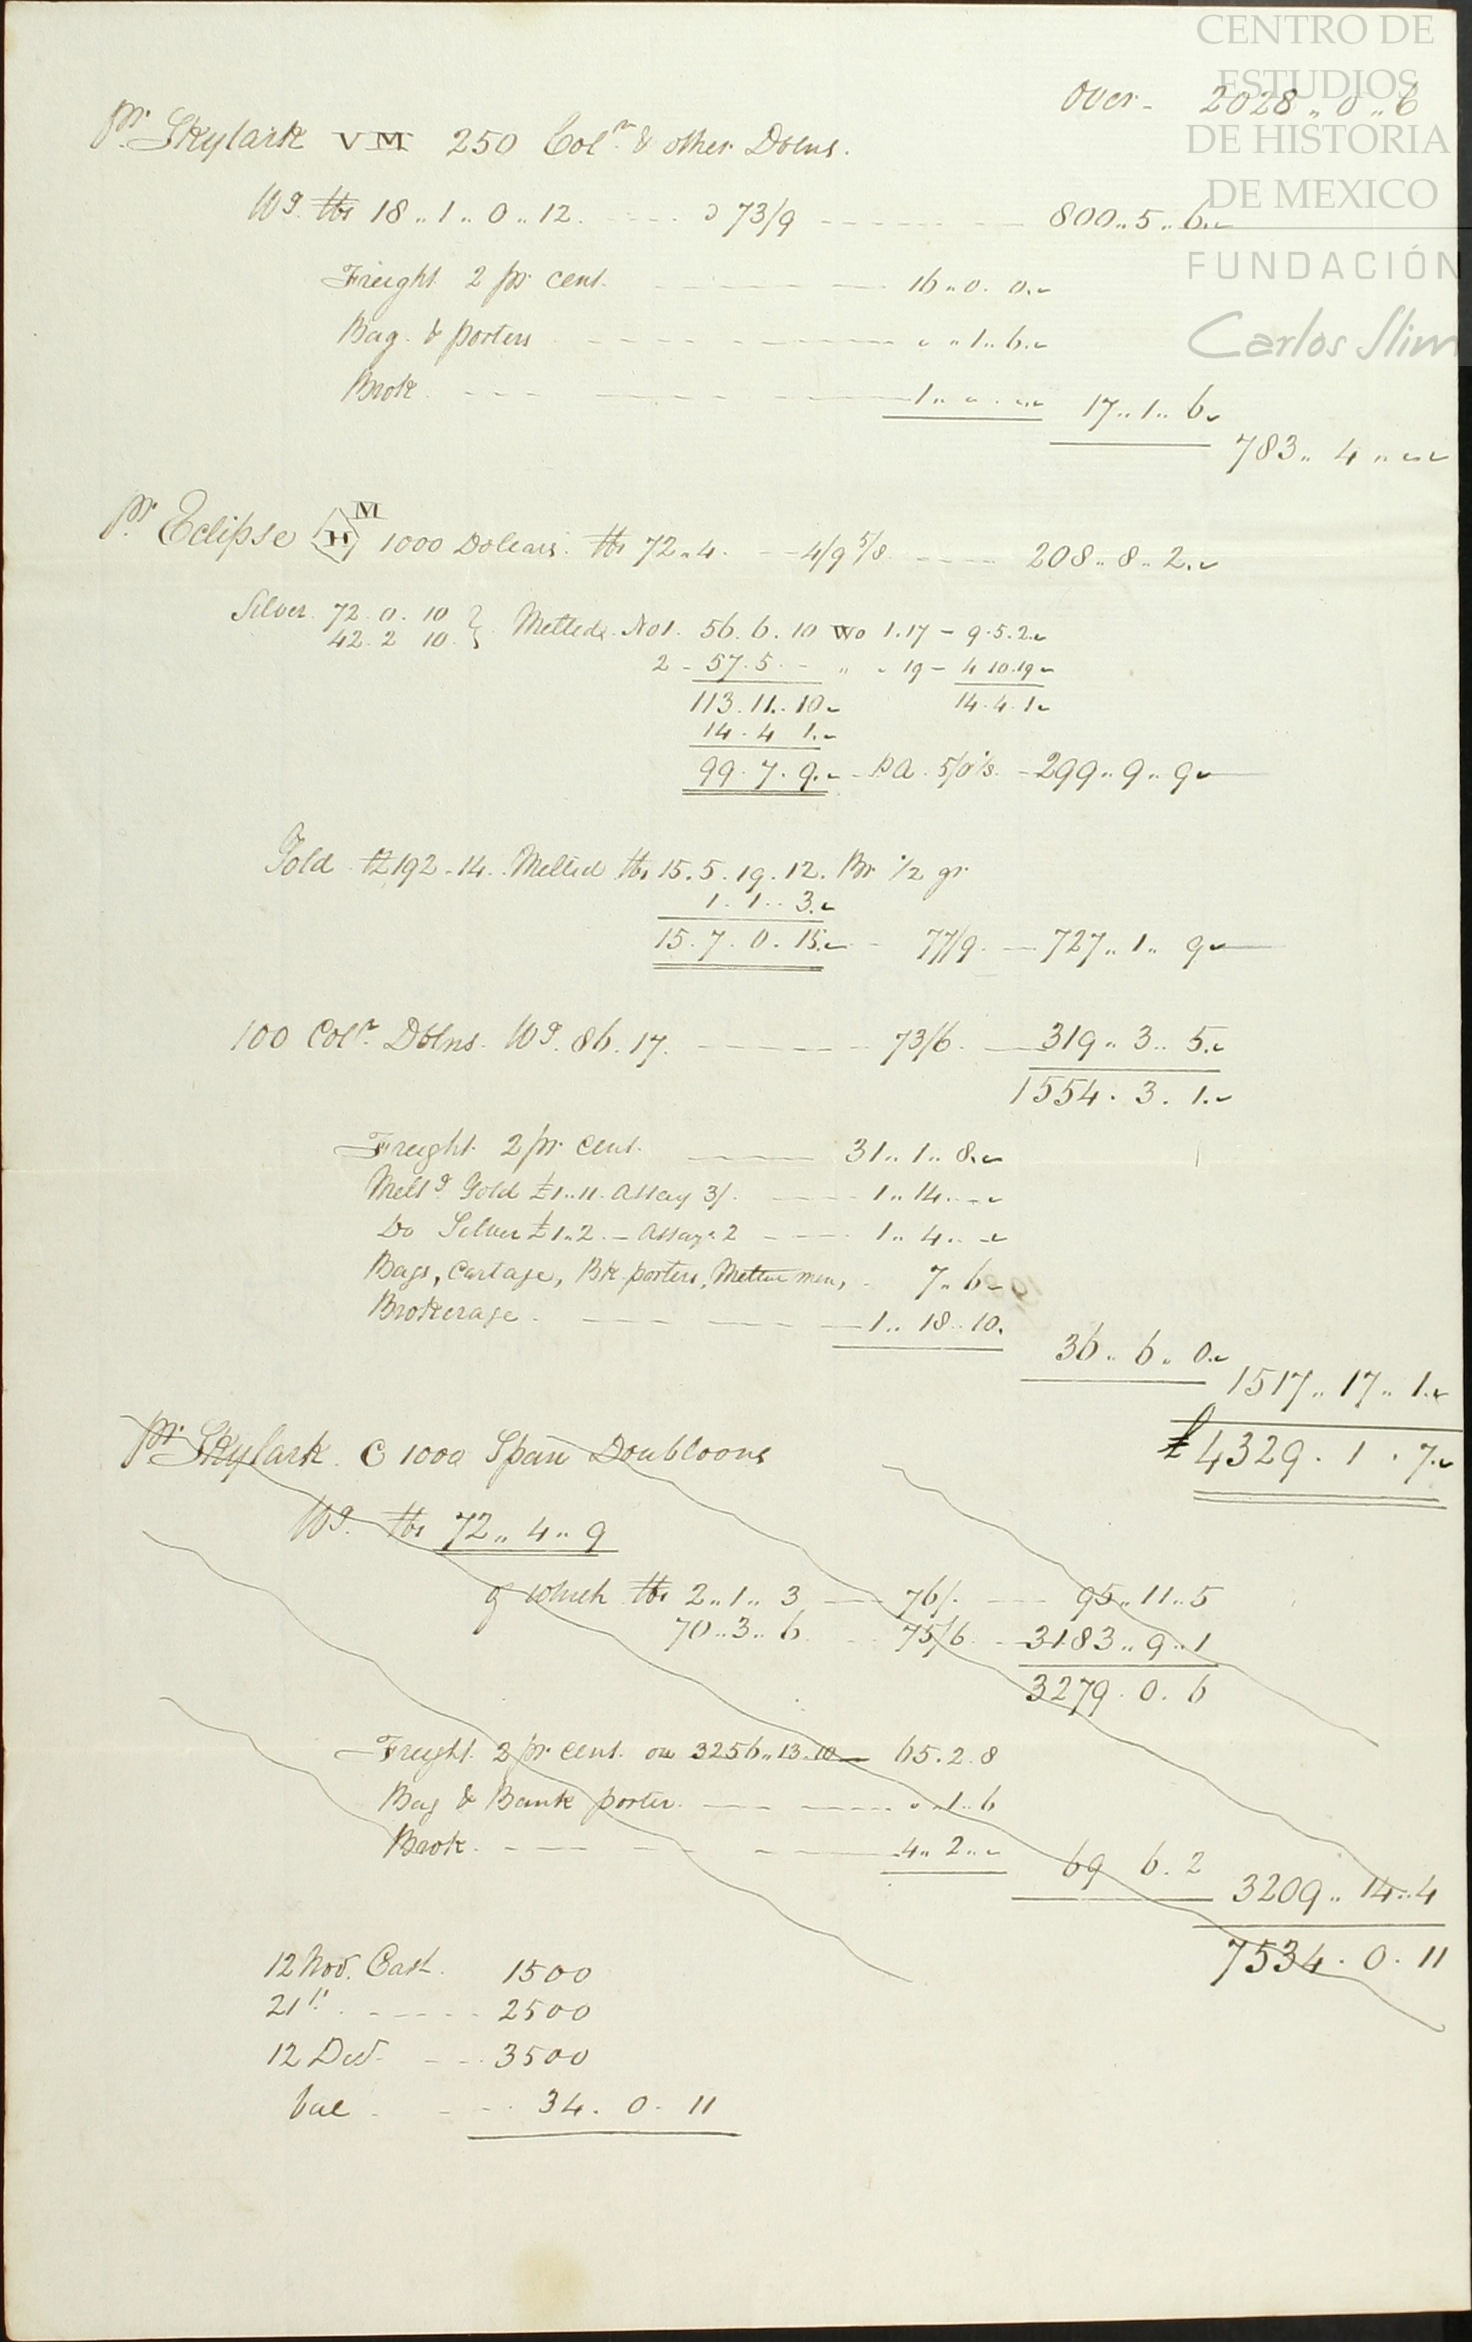 CENTRO DE
ESTUDIOS
DE HISTORIA
DE MEXICO
FUNDACIÓN
Carlos Slim
Over - 2028 ,, 0 ,, 6
Pr. Skylark VM 250 Colⁿ & other Dblns.
Wg. lbs 18 ,, 1 ,, 0 ,, 12. - - - - 73/9 - - - - 800 ,, 5 ,, 6.
Freight 2 pr cent. - - - - 16 ,, 0. 0.
Bag & porters - - - - ,, ,, 1 ,, 6.
Brok. - - - - 1 ,, ,, . ,, 17 ,, 1 ,, 6
783 ,, 4 ,, ,,
Pr. Eclipse H M 1000 Dollars. lbs 72 ,, 4. - - 4/9 5/8 - - - - 208 ,, 8 ,, 2.
Silver 72. 0. 10 } Melted No 1. 56. 6. 10 Wo 1.17 - 9.5.2
42. 2 10. }
2 - 57. 5. - ,, ,, 19 - 4 10.19
113. 11. 10 14. 4. 1
14. 4 1.
99. 7. 9. - 5/0 1/8. - 299 ,, 9 ,, 9
Gold 192 - 14. Melted lbs 15. 5. 19. 12. Br 1/2 gr
1. 1. 3.
15. 7. 0. 15. - 77/9. - 727 ,, 1 ,, 9
100 Colⁿ Dblns. Wg. 86. 17. - - - - 73/6. - 319 ,, 3 ,, 5.
1554. 3. 1.
Freight 2 pr cent. - - - 31 ,, 1 ,, 8.
Meltg Gold £1 ,, 11. Assay 3/. - - - 1 ,, 14. - -
Do Silver £1 ,, 2. - Assay 2 - - - 1 ,, 4. -
Bags, Cartage, Bk porters, men, - 7 ,, 6
Brokerage. - - - - 1 ,, 18 ,, 10.
36 ,, 6 ,, 0.
1517 ,, 17 ,, 1.
£ 4329. 1. 7.
Pr. Skylark. C 1000 Span Doubloons
Wg. lbs 72 ,, 4 ,, 9
of which lbs 2 ,, 1 ,, 3 - 76/. - - 95 ,, 11 ,, 5
70 ,, 3 ,, 6. - 75/6 - 3183 ,, 9 ,, 1
3279. 0. 6
Freight 2 pr cent. on 3256 ,, 13. 10 - 65. 2. 8
Bag & Bank porter. - - - ,, 1 ,, 6
Brok. - - - - 4 ,, 2 ,, -
69 6. 2
3209 ,, 14 ,, 4
7534. 0. 11
12 Nov. Cash. 1500
21 ". - - - - 2500
12 Decr. - - 3500
Bal. - - - 34. 0. 11